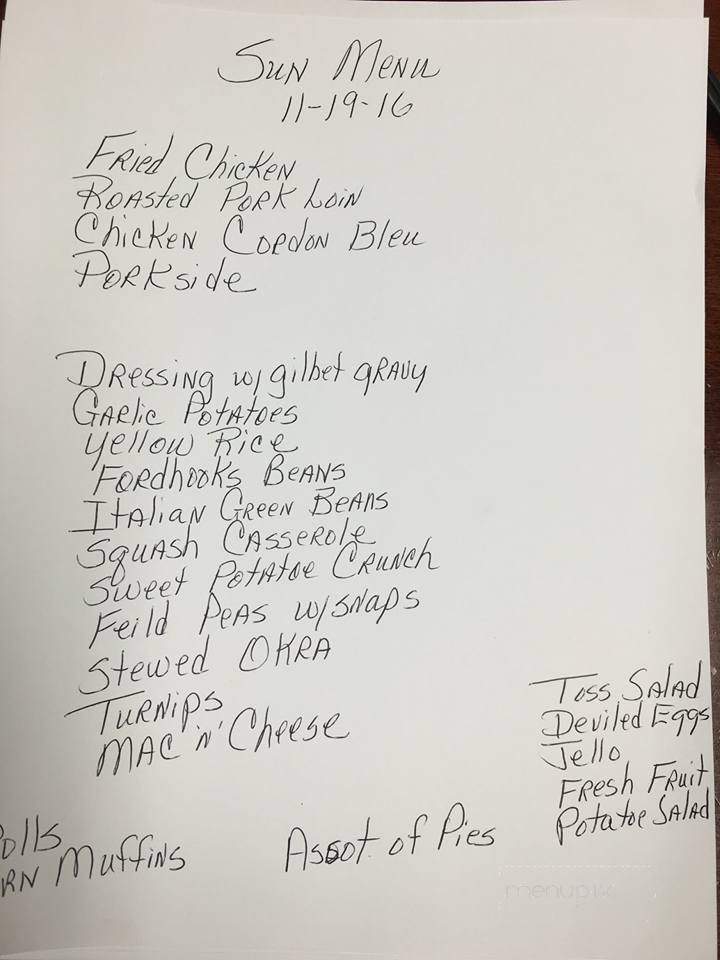 Sun Menu
11-19-16
Fried Chicken
Roasted Pork Loin
Chicken Cordon Bleu
Porkside
Dressing w/ gilbet gravy
Garlic Potatoes
Yellow Rice
Fordhooks Beans
Italian Green Beans
Squash Casserole
Sweet Potatoe Crunch
Feild Peas w/ snaps
Stewed Okra
Turnips
Mac 'n' Cheese
Toss Salad
Deviled Eggs
Jello
Fresh Fruit
Potatoe Salad
olls
rn Muffins
Assot of Pies